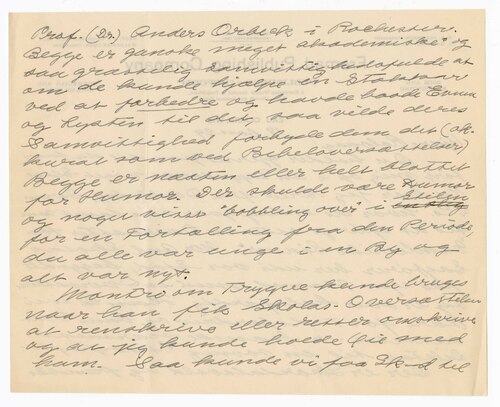 Prof. (Dr.) Anders Orbeck i Rochester.
Begge er ganske meget "akademiske" og
saa græsselig samvittighedsfulde at
om de kunde hjælpe en Stakkar
ved at forbedre og havde baade Evnen
og Lysten til det, saa vilde deres
Samvittighed forbyde dem det (ak-
kurat som ved Bibeloversættelser)
Begge er næsten eller helt blottet
for Humor. Der skulde være Humor
og noget visst "bobbling over" i Stilen
for en Fortælling fra den Periode,
du alle var unge i en By og
alt var nyt.
Montro om Trygve kunde bruges
naar han fik Skolas Oversættelse
at renskrive eller retter omskrive
og at jeg kunde holde Øie med
ham. Saa kunde vi faa Sk-d til